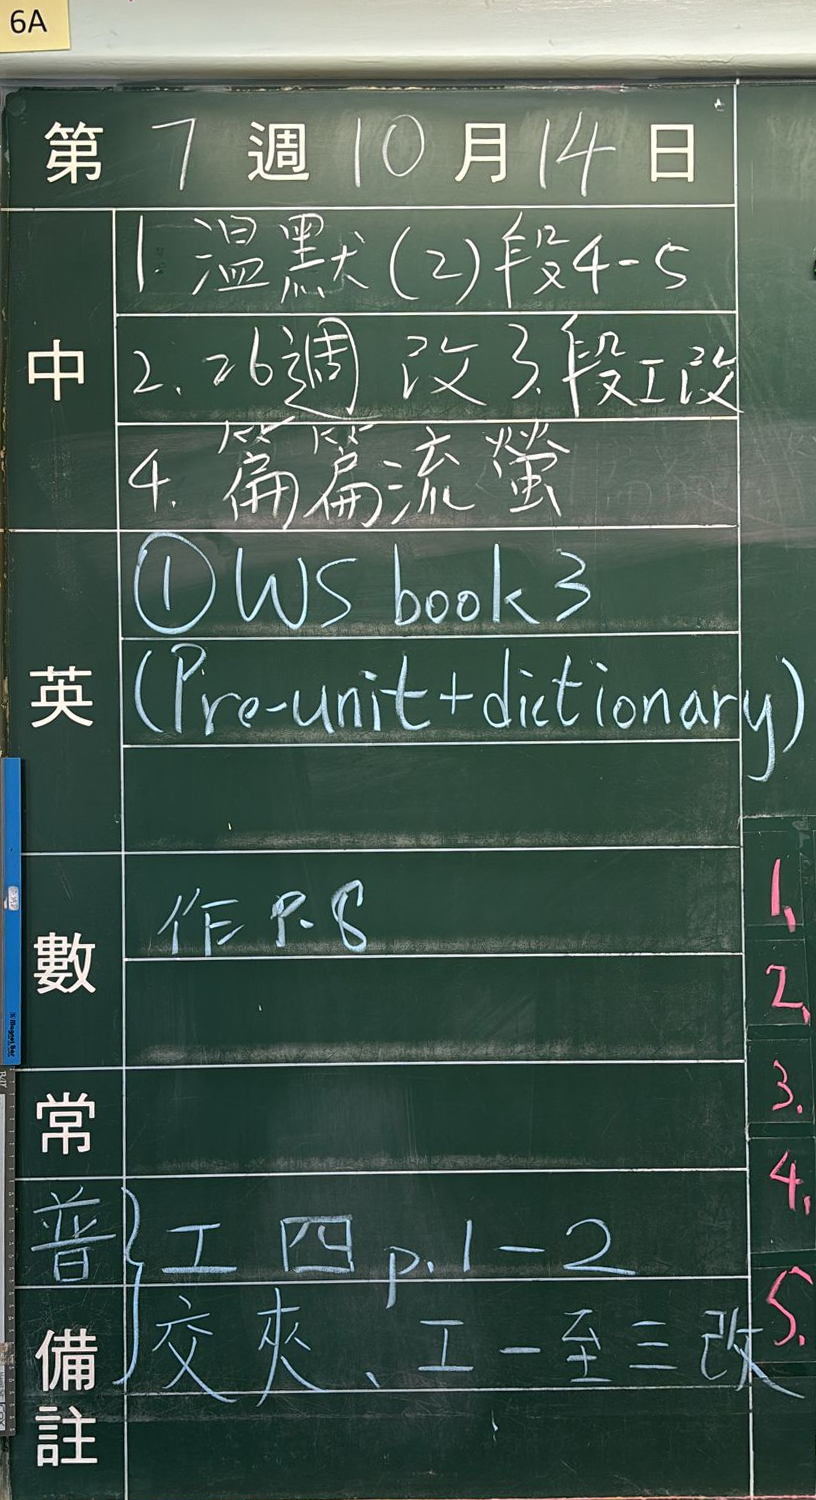 6A
第 7 週 10 月 14 日
中
1. 温默(2)段4-5
2. 26週 改 3. 段工改
4. 篇篇流螢
英
①WS book 3
(Pre-unit+dictionary)
數
作 P.8
常
普
工 四 p.1-2
備註
交夾、工一至三改
1.
2.
3.
4.
5.